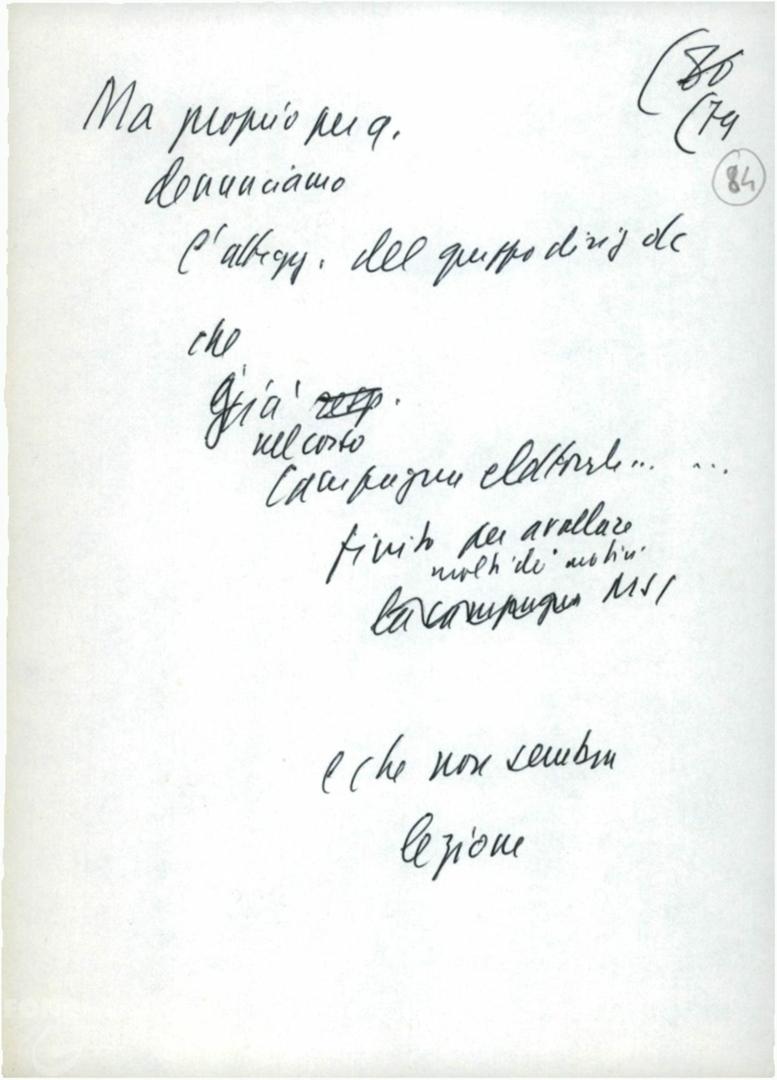 (86
(79
84
Ma proprio per q.
denunciamo
l'attegg. del gruppo dirig dc
che
già
nel corso
campagna elettorale... ...
finito per avallare
molti dei motivi
la campagna MSI
e che non sembra
lezione